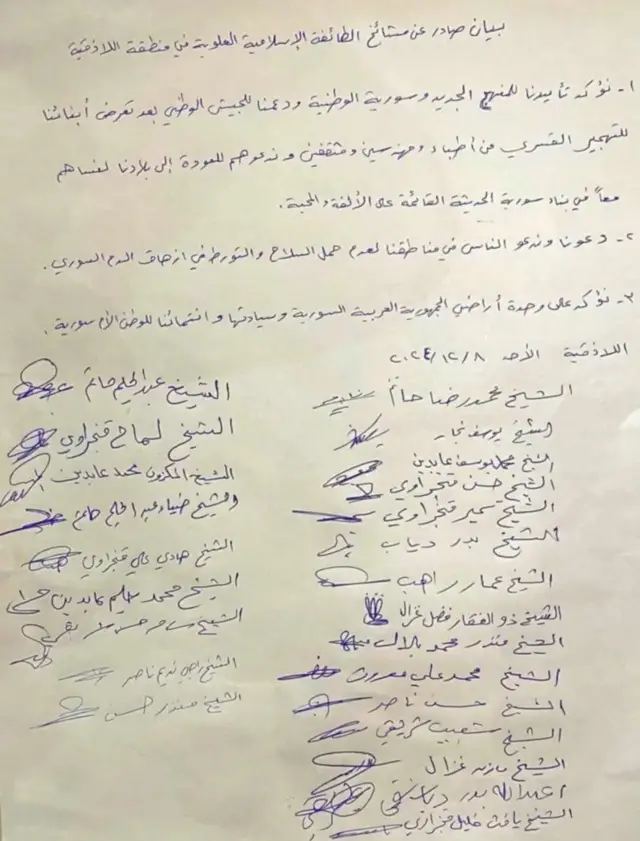 بيان صادر عن مشائخ الطائفة الإسلامية العلوية في منطقة اللاذقية
١- نؤكد تأييدنا للمنهج الجديد وسورية الوطنية ودعمنا للجيش الوطني بعد تعرض أبنائنا
للتهجير القسري من أطباء ومهندسين ومثقفين وندعوهم للعودة إلى بلادنا لنساهم
معاً في بناء سورية الحديثة القائمة على الألفة والمحبة.
٢- دعونا وندعو الناس في مناطقنا لعدم حمل السلاح والتورط في ازهاق الدم السوري.
٣- نؤكد على وحدة أراضي الجمهورية العربية السورية وسيادتها وانتمائنا للوطن الأم سورية.
اللاذقية الأحد ٢٠٢٤/١٢/٨
الشيخ محمد رضا حاتم
الشيخ يوسف نجار
الشيخ محمد يوسف عابدين
الشيخ حسن قنجراوي
الشيخ سمير قنجراوي
الشيخ بدر دياب
الشيخ عمار راهب
الشيخ ذو الفقار فضل غزال
الشيخ منذر محمد بلال
الشيخ محمد علي معروف
الشيخ حسن ناصر
الشيخ شعيب شريقي
الشيخ مازن غزال
عبدالله بدر
الشيخ يافث خليل قنجراوي
الشيخ عبد الحليم حاتم
الشيخ سماح قنجراوي
الشيخ المكزون محمد عابدين
الشيخ ضياء عبد الحليم حاتم
الشيخ هادي علي قنجراوي
الشيخ محمد سليم عابدين
الشيخ
الشيخ راجي نديم ناصر
الشيخ منذر حسن